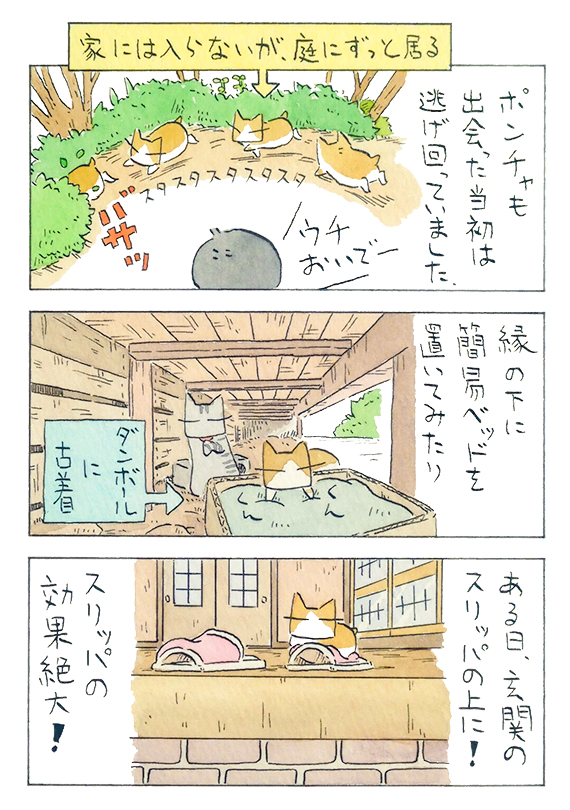 家には入らないが、庭にずっと居る
ポンチャも
出会った当初は
逃げ回っていました。
スタスタスタスタスタ
ガサッ
ウチ
おいでー
縁の下に
簡易ベッドを
置いてみたり
くん…
くん…
ダンボール
に
古着
ある日、玄関の
スリッパの上に!
スリッパの
効果絶大!